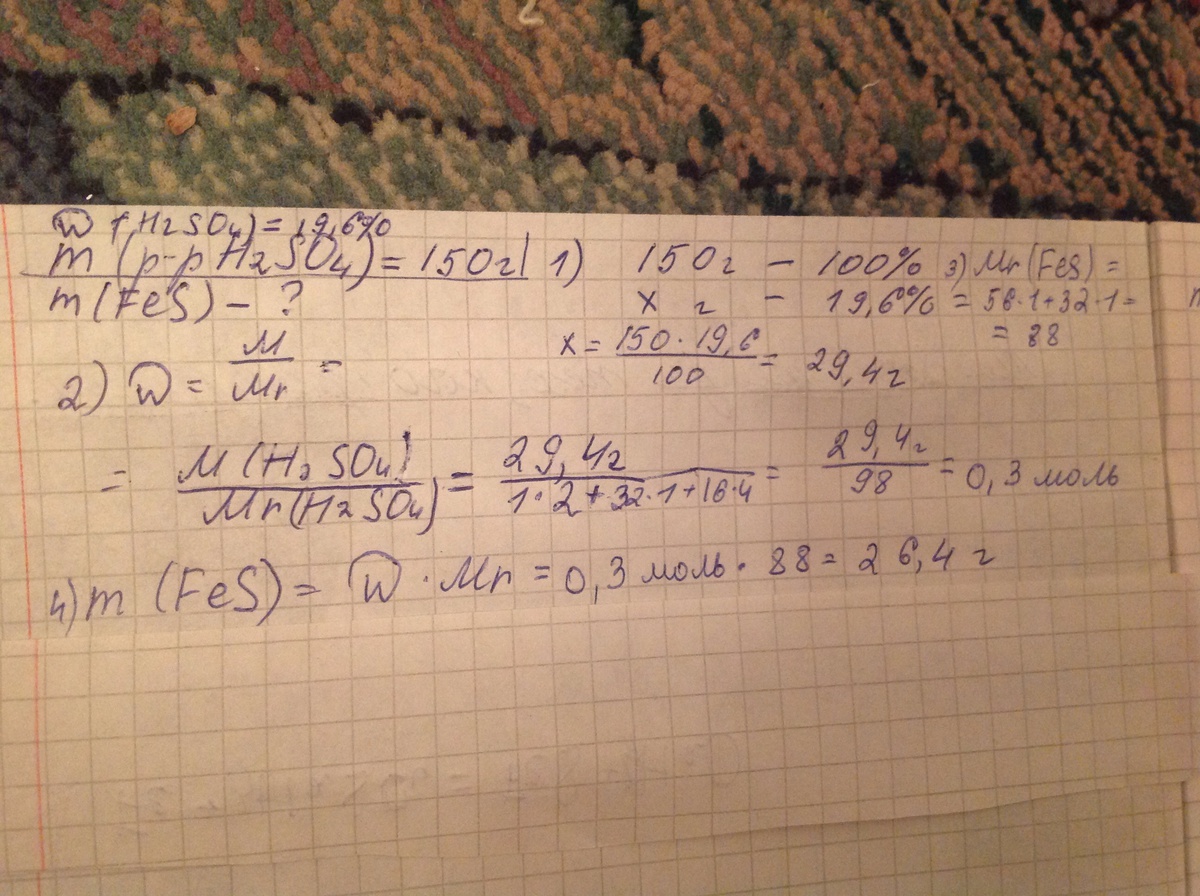 ω (H2SO4) = 19,6%
m (р-р H2SO4) = 150г
m (FeS) - ?
1) 150г - 100%
x г - 19,6%
x = 150·19,6 / 100 = 29,4г
3) Mr (FeS) =
= 56·1+32·1=
= 88
2) ω = M / Mr =
= M (H2SO4) / Mr (H2SO4) = 29,4г / 1·2+32·1+16·4 = 29,4г / 98 = 0,3 моль
4) m (FeS) = ω · Mr = 0,3 моль · 88 = 26,4 г